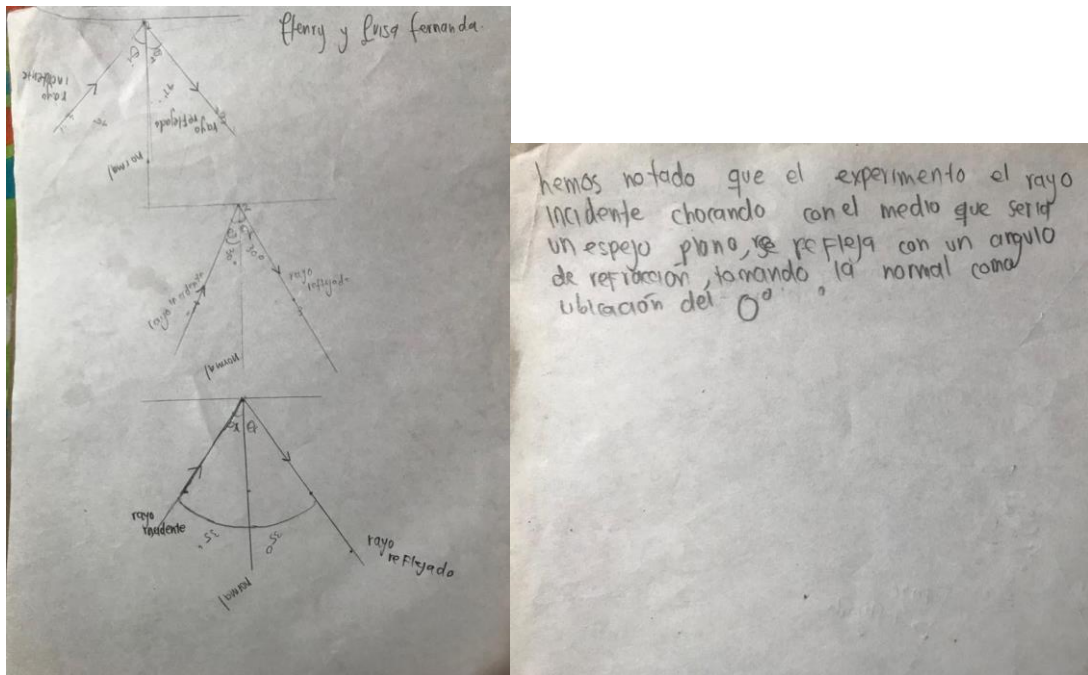 Henry y Luisa fernanda.
rayo
incidente
rayo
reflejado
normal
rayo incidente
30°
30°
rayo
reflejado
normal
rayo
incidente
35°
35°
rayo
reflejado
normal
hemos notado que el experimento el rayo
incidente chocando con el medio que seria
un espejo plano, se refleja con un angulo
de refracción, tomando la normal como
ubicación del 0°